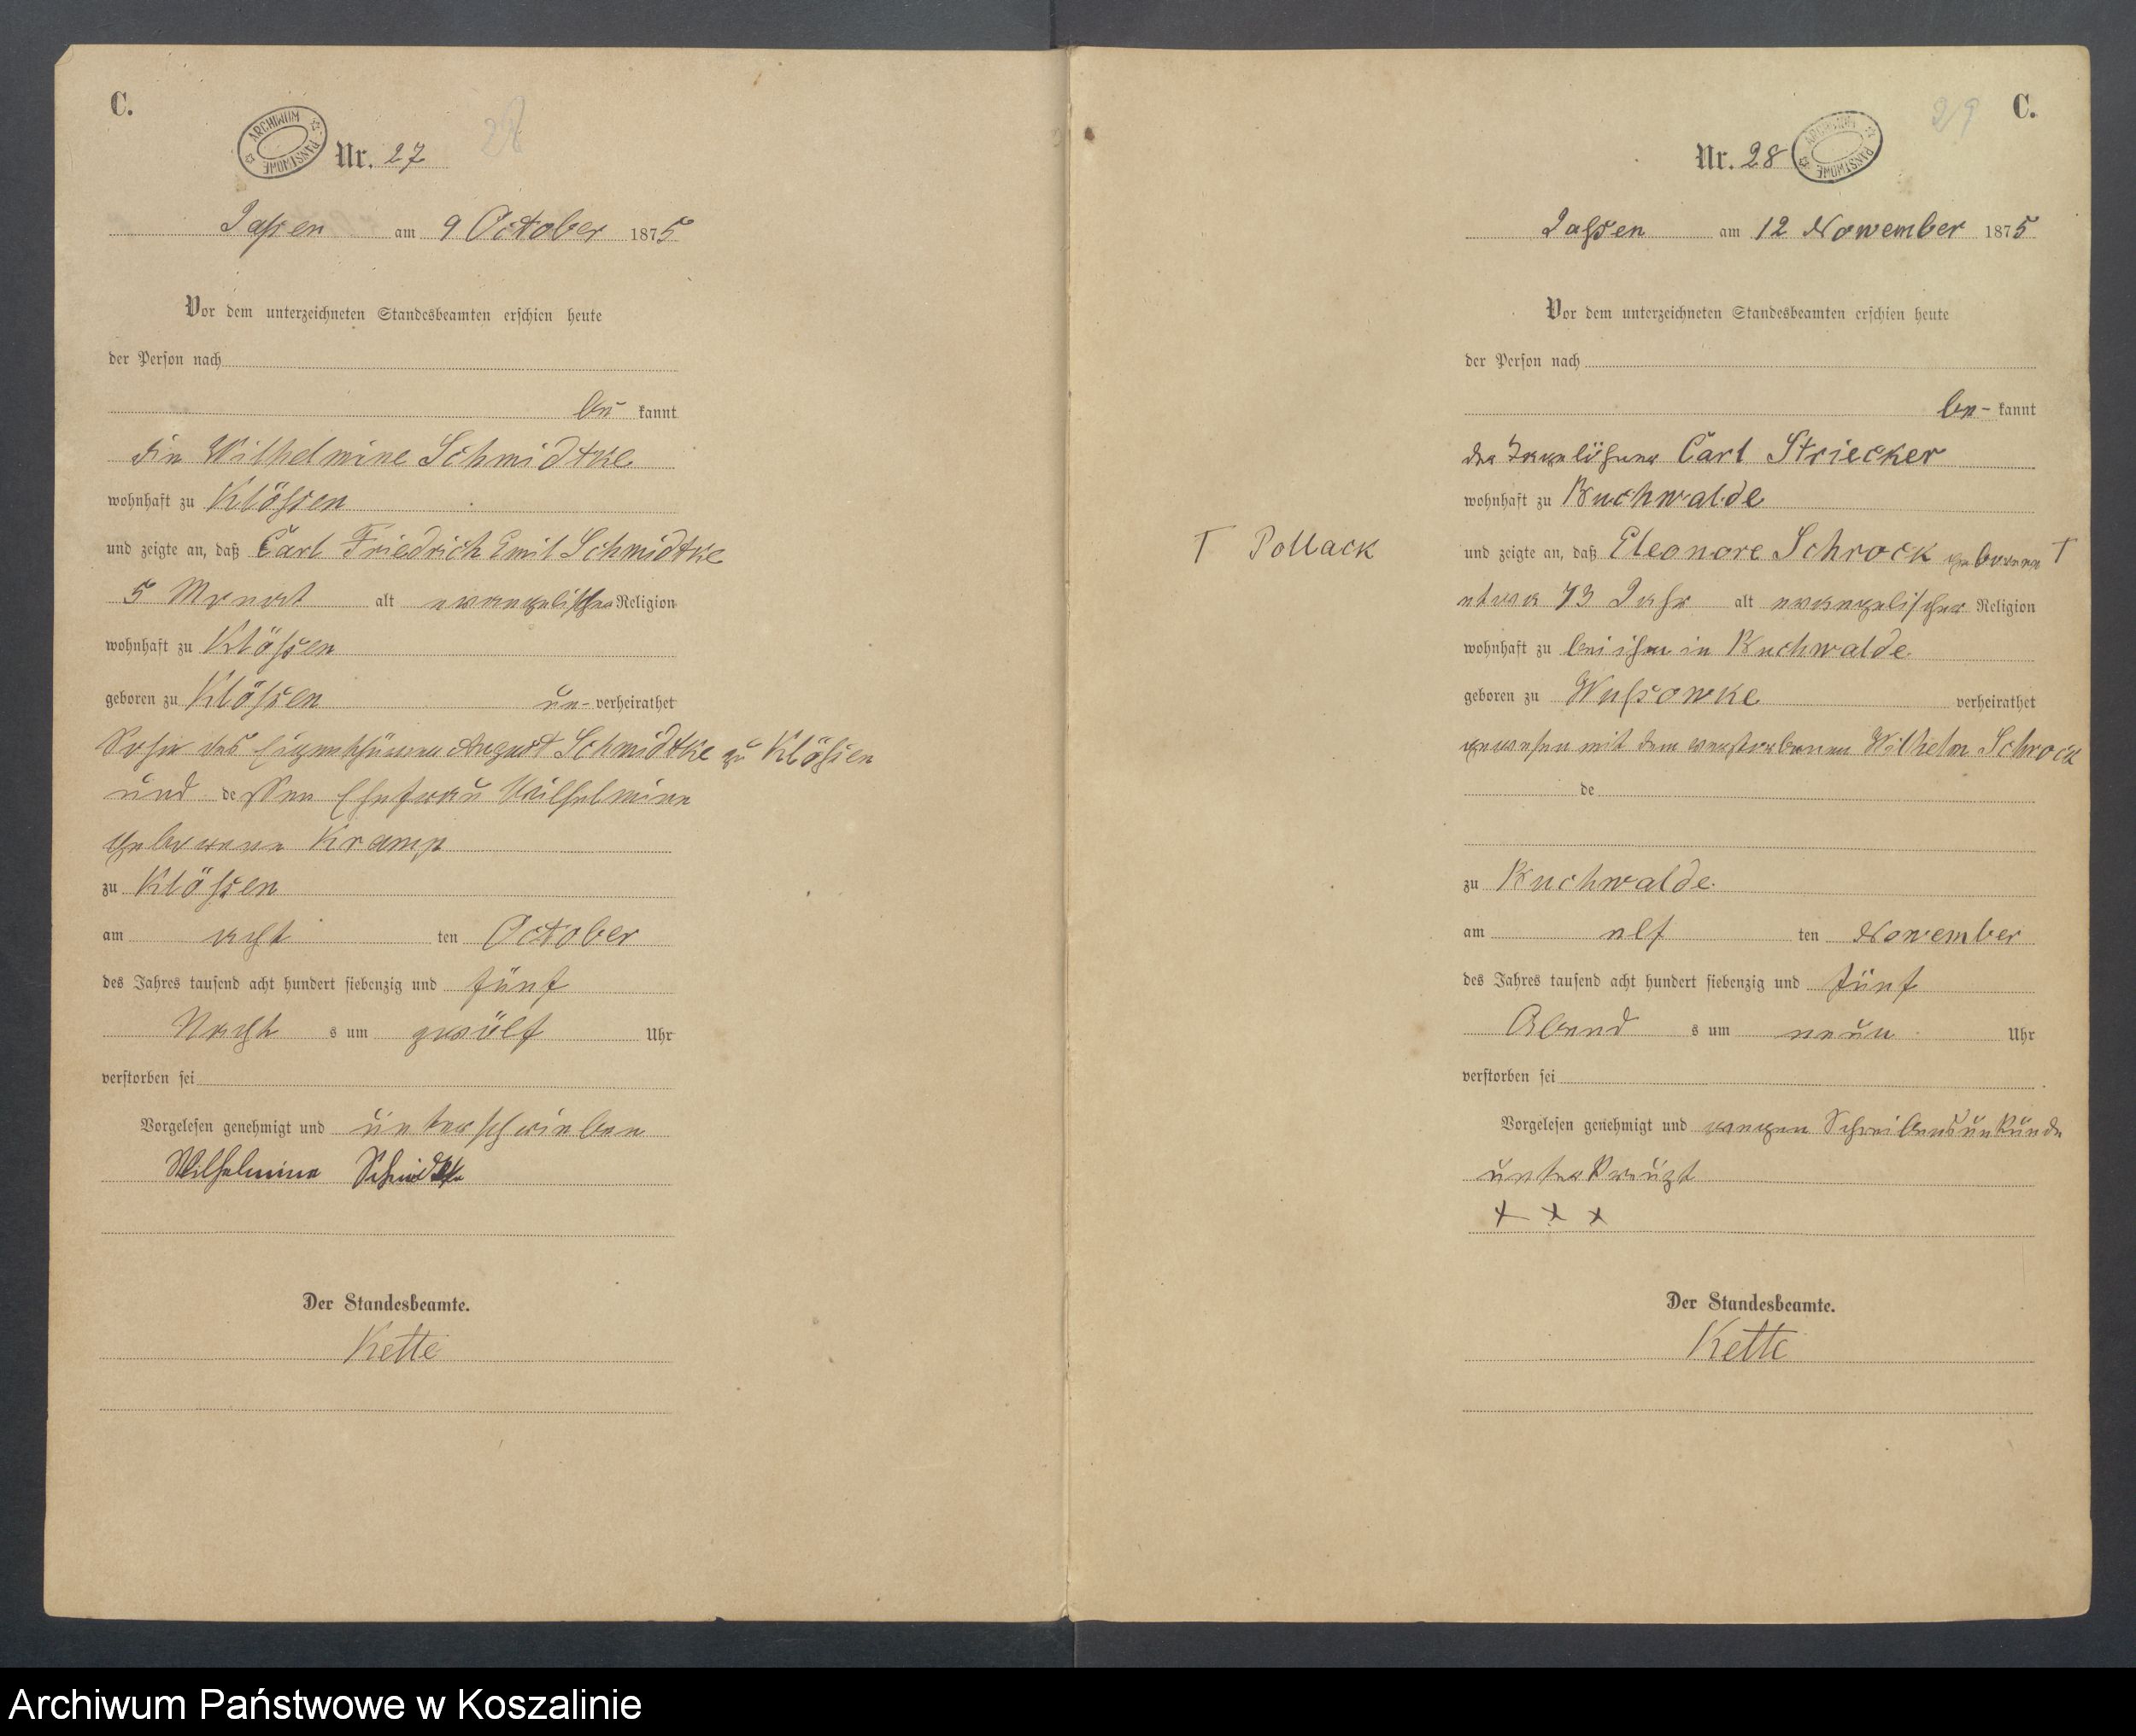 C.
ARCHIWUM PAŃSTWOWE
28
Nr. 27
Jassen am 9 October 1875
Vor dem unterzeichneten Standesbeamten erschien heute
der Person nach
be kannt
die Wilhelmine Schmidtke
wohnhaft zu Klössen
und zeigte an, daß Carl Friedrich Emil Schmidtke
5 Monat alt evangelischer Religion
wohnhaft zu Klössen
geboren zu Klössen un- verheirathet
Sohn des Eigenthümers August Schmidtke zu Klössen
und dessen Ehefrau Wilhelmine
geborene Kramp
zu Klössen
am acht ten October
des Jahres tausend acht hundert siebenzig und fünf
Nacht s um zwölf Uhr
verstorben sei
Vorgelesen genehmigt und unterschrieben
Wilhelmine Schmidtke
Der Standesbeamte.
Kette
29
C.
Nr. 28
ARCHIWUM PAŃSTWOWE
Jassen am 12 November 1875
Vor dem unterzeichneten Standesbeamten erschien heute
der Person nach
be- kannt
der Carl Striecker
wohnhaft zu Buchwalde
T Pollack
und zeigte an, daß Eleonore Schrock geborene T
etwa 73 Jahr alt evangelischer Religion
wohnhaft zu bei ihm in Buchwalde
geboren zu Wussowke verheirathet
gewesen mit dem verstorbenen Wilhelm Schrock
de
zu Buchwalde
am elf ten November
des Jahres tausend acht hundert siebenzig und fünf
Abend s um neun Uhr
verstorben sei
Vorgelesen genehmigt und wegen Schreibensunkunde
unterkreuzt
+ + +
Der Standesbeamte.
Kette
Archiwum Państwowe w Koszalinie